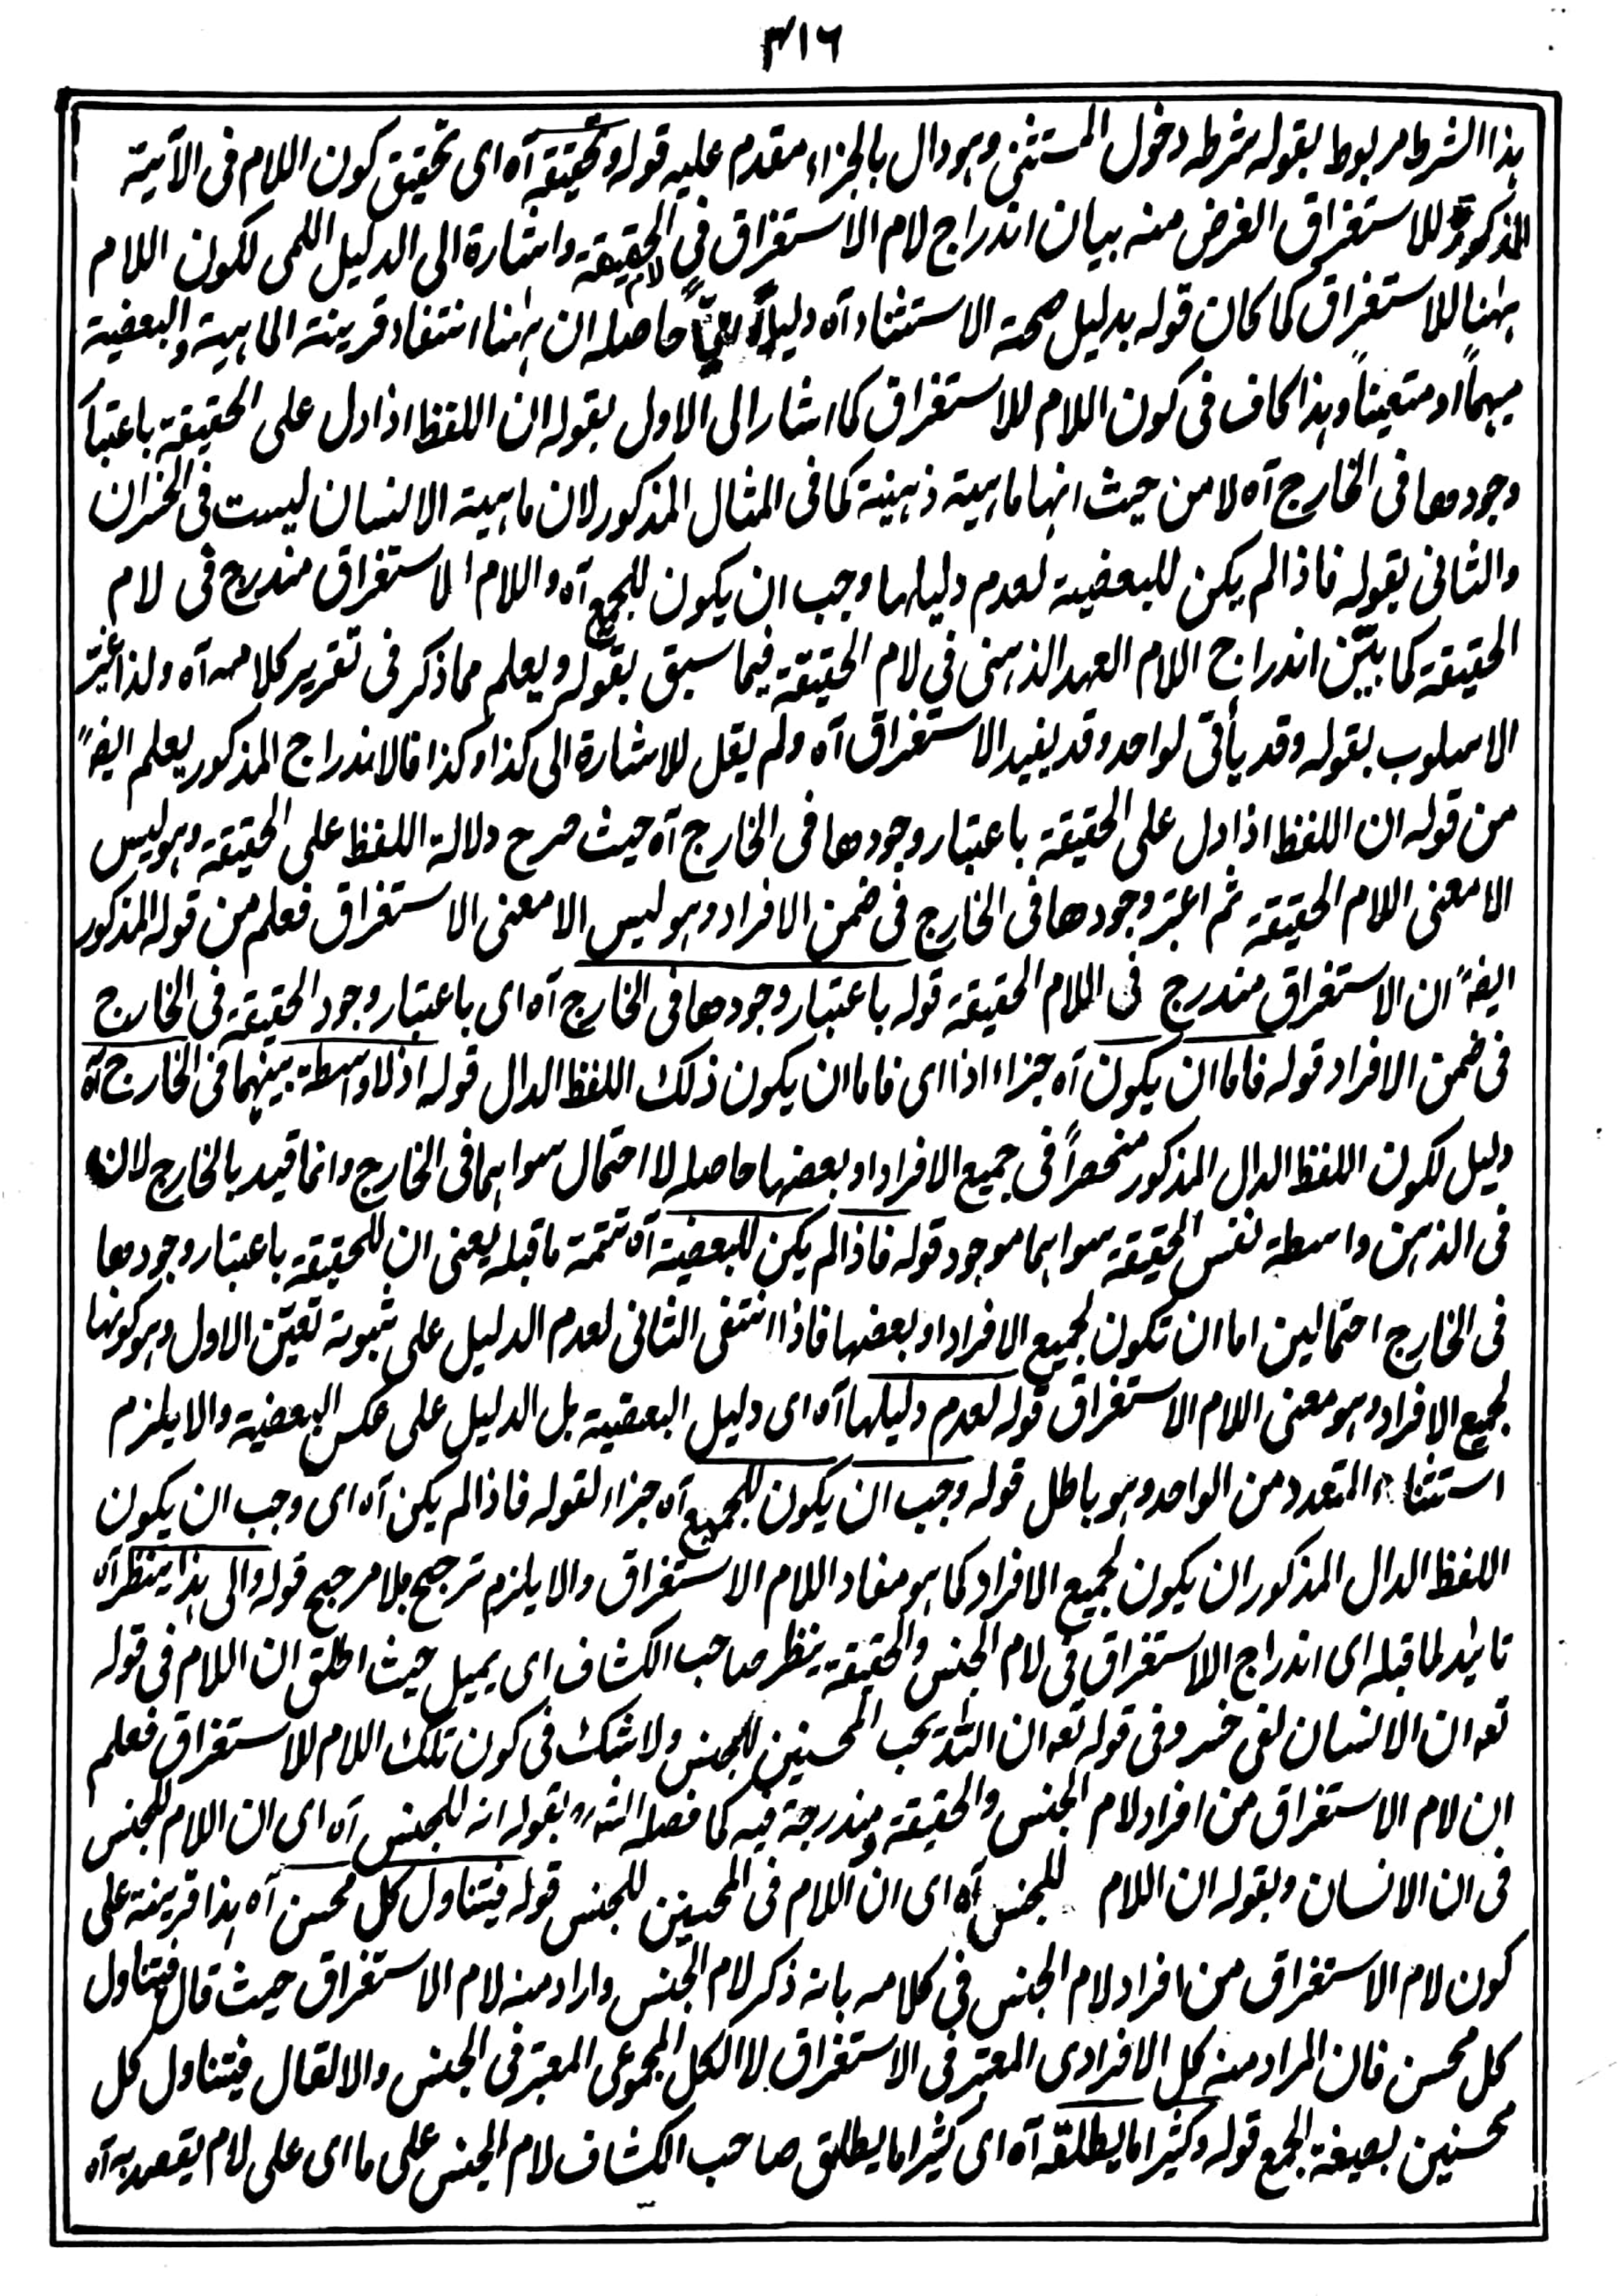 ٣١٦
هذا الشرط مربوط بقوله شرطه دخول المستثنى وهو دال بالجزاء مقدم عليه قوله وتحقيقه آه اى تحقيق كون اللام فى الآية
المذكورة للاستغراق الغرض منه بيان اندراج لام الاستغراق في لام الحقيقة واشارة الى الدليل اللمى لكون اللام
ههنا للاستغراق كما كان قوله بدليل صحة الاستثناء آه دليلاً انياً حاصله ان ههنا انتفاء قرينة الماهية والبعضية
مبهماً او متعيناً وهذا كاف فى كون اللام للاستغراق كما اشار الى الاول بقوله ان اللفظ اذا دل على الحقيقة باعتبار
وجودها فى الخارج آه لا من حيث انها ماهية ذهنية كما فى المثال المذكور لان ماهية الانسان ليست فى الخسران
والثانى بقوله فاذا لم يكن للبعضية لعدم دليلها وجب ان يكون للجميع آه واللام الاستغراق مندرج فى لام
الحقيقة كما بيّن اندراج اللام العهد الذهنى في لام الحقيقة فيما سبق بقوله ويعلم مما ذكر فى تقرير كلامه آه ولذا غيّر
الاسلوب بقوله وقد يأتى لواحد وقد يفيد الاستغراق آه ولم يقل للاشارة الى كذا وكذا فالاندراج المذكور يعلم ايضاً
من قوله ان اللفظ اذا دل على الحقيقة باعتبار وجودها فى الخارج آه حيث صرح دلالة اللفظ على الحقيقة وهو ليس
الا معنى اللام الحقيقة ثم اعتبر وجودها فى الخارج فى ضمن الافراد وهو ليس الا معنى الاستغراق فعلم من قوله المذكور
ايضاً ان الاستغراق مندرج فى اللام الحقيقة قوله باعتبار وجودها فى الخارج آه اى باعتبار وجود الحقيقة فى الخارج
فى ضمن الافراد قوله فاما ان يكون آه جزاء اذا اى فاما ان يكون ذلك اللفظ الدال قوله اذ لا واسطة بينهما فى الخارج آه
دليل لكون اللفظ الدال المذكور منحصراً فى جميع الافراد او بعضها حاصله لا احتمال سواهما فى الخارج وانما قيد بالخارج لان
فى الذهن واسطة نفس الحقيقة سواهما موجود قوله فاذا لم يكن للبعضية آه تتمة ما قبله يعنى ان للحقيقة باعتبار وجودها
فى الخارج احتمالين اما ان تكون لجميع الافراد او بعضها فاذا انتفى الثانى لعدم الدليل على ثبوته تعيّن الاول وهو كونها
لجميع الافراد وهو معنى اللام الاستغراق قوله لعدم دليلها آه اى دليل البعضية بل الدليل على عكس البعضية والا يلزم
استثناء المتعدد من الواحد وهو باطل قوله وجب ان يكون للجميع آه جزاء لقوله فاذا لم يكن آه اى وجب ان يكون
اللفظ الدال المذكور ان يكون لجميع الافراد كما هو مفاد اللام الاستغراق والا يلزم ترجيح بلا مرجح قوله والى هذا ينظر آه
تائيد لما قبله اى اندراج الاستغراق فى لام الجنس والحقيقة ينظر صاحب الكشاف اى يميل حيث اطلق ان اللام فى قوله
تعه ان الانسان لفى خسر وفى قوله تعه ان الله يحب المحسنين للجنس ولا شك فى كون تلك اللام للاستغراق فعلم
ان لام الاستغراق من افراد لام الجنس والحقيقة ومندرجة فيه كما فصله الشه بقوله انه للجنس آه اى ان اللام للجنس
فى ان الانسان وبقوله ان اللام للجنس آه اى ان اللام فى المحسنين للجنس قوله فيتناول كل محسن آه هذا قرينة على
كون لام الاستغراق من افراد لام الجنس فى كلامه بانه ذكر لام الجنس واراد منه لام الاستغراق حيث قال فيتناول
كل محسن فان المراد منه كل الافرادى المعتبر فى الاستغراق لا الكل المجموعى المعتبر فى الجنس والا لقال فيتناول كل
محسنين بصيغة الجمع قوله وكثيرا ما يطلقه آه اى كثيرا ما يطلق صاحب الكشاف لام الجنس على ما اى على لام يقصد به آه